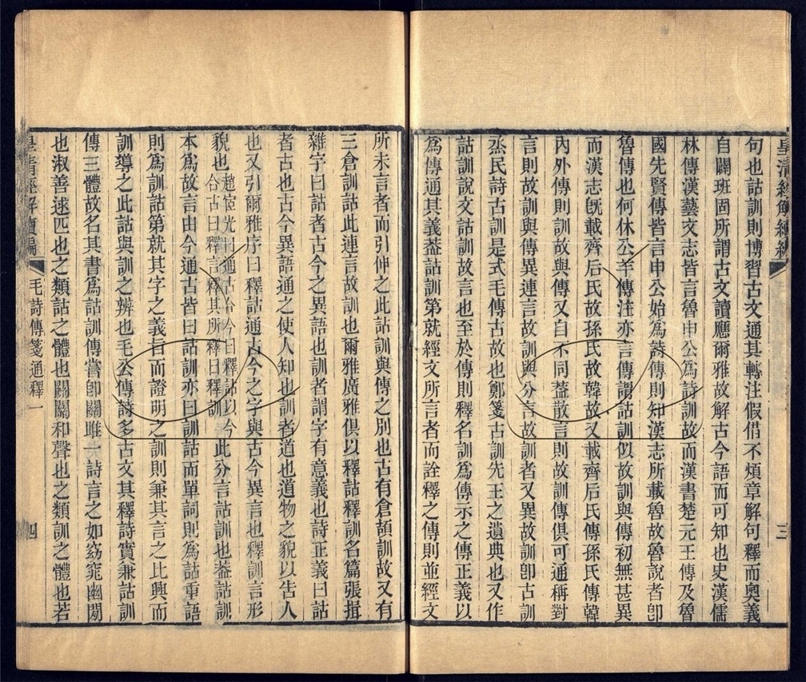 皇清經解續編
三
句也詁訓則博習古文通其轉注假借不煩章解句釋而奧義
自闢班固所謂古文讀應爾雅故解古今語而可知也史漢儒
林傳漢藝文志皆言魯申公為詩訓故而漢書楚元王傳及魯
國先賢傳皆言申公始為詩傳則知漢志所載魯故魯說者卽
魯傳也何休公羊傳注亦言傳謂詁訓似故訓與傳初無甚異
而漢志旣載齊后氏故孫氏故韓故又載齊后氏傳孫氏傳韓
內外傳則訓故與傳又自不同葢散言則故訓傳俱可通稱對
言則故訓與傳異連言故訓與分言故訓者又異故訓卽古訓
烝民詩古訓是式毛傳古故也鄭箋古訓先王之遺典也又作
詁訓說文詁訓故言也至於傳則釋名訓為傳示之傳正義以
為傳通其義葢詁訓第就經文所言者而詮釋之傳則並經文
所未言者而引伸之此詁訓與傳之別也古有倉頡訓故又有
三倉訓詁此連言故訓也爾雅廣雅俱以釋詁釋訓名篇張揖
雜字曰詁者古今之異語也訓者謂字有意義也詩正義曰詁
者古也古今異語通之使人知也訓者道也道物之貌以告人
也又引爾雅序曰釋詁通古今之字與古今異言也釋訓言形
貌也趙宧光曰通古合今曰釋詁以今合古曰釋言釋其所釋曰釋訓此分言詁訓也葢詁訓
本為故言由今通古皆曰詁訓亦曰訓詁而單詞則為詁重語
則為訓詁第就其字之義旨而證明之訓則兼其言之比興而
訓導之此詁與訓之辨也毛公傳詩多古文其釋詩實兼詁訓
傳三體故名其書為詁訓傳嘗卽關雎一詩言之如窈窕幽閒
也淑善逑匹也之類詁之體也關關和聲也之類訓之體也若
皇清經解續編
毛詩傳箋通釋一
四